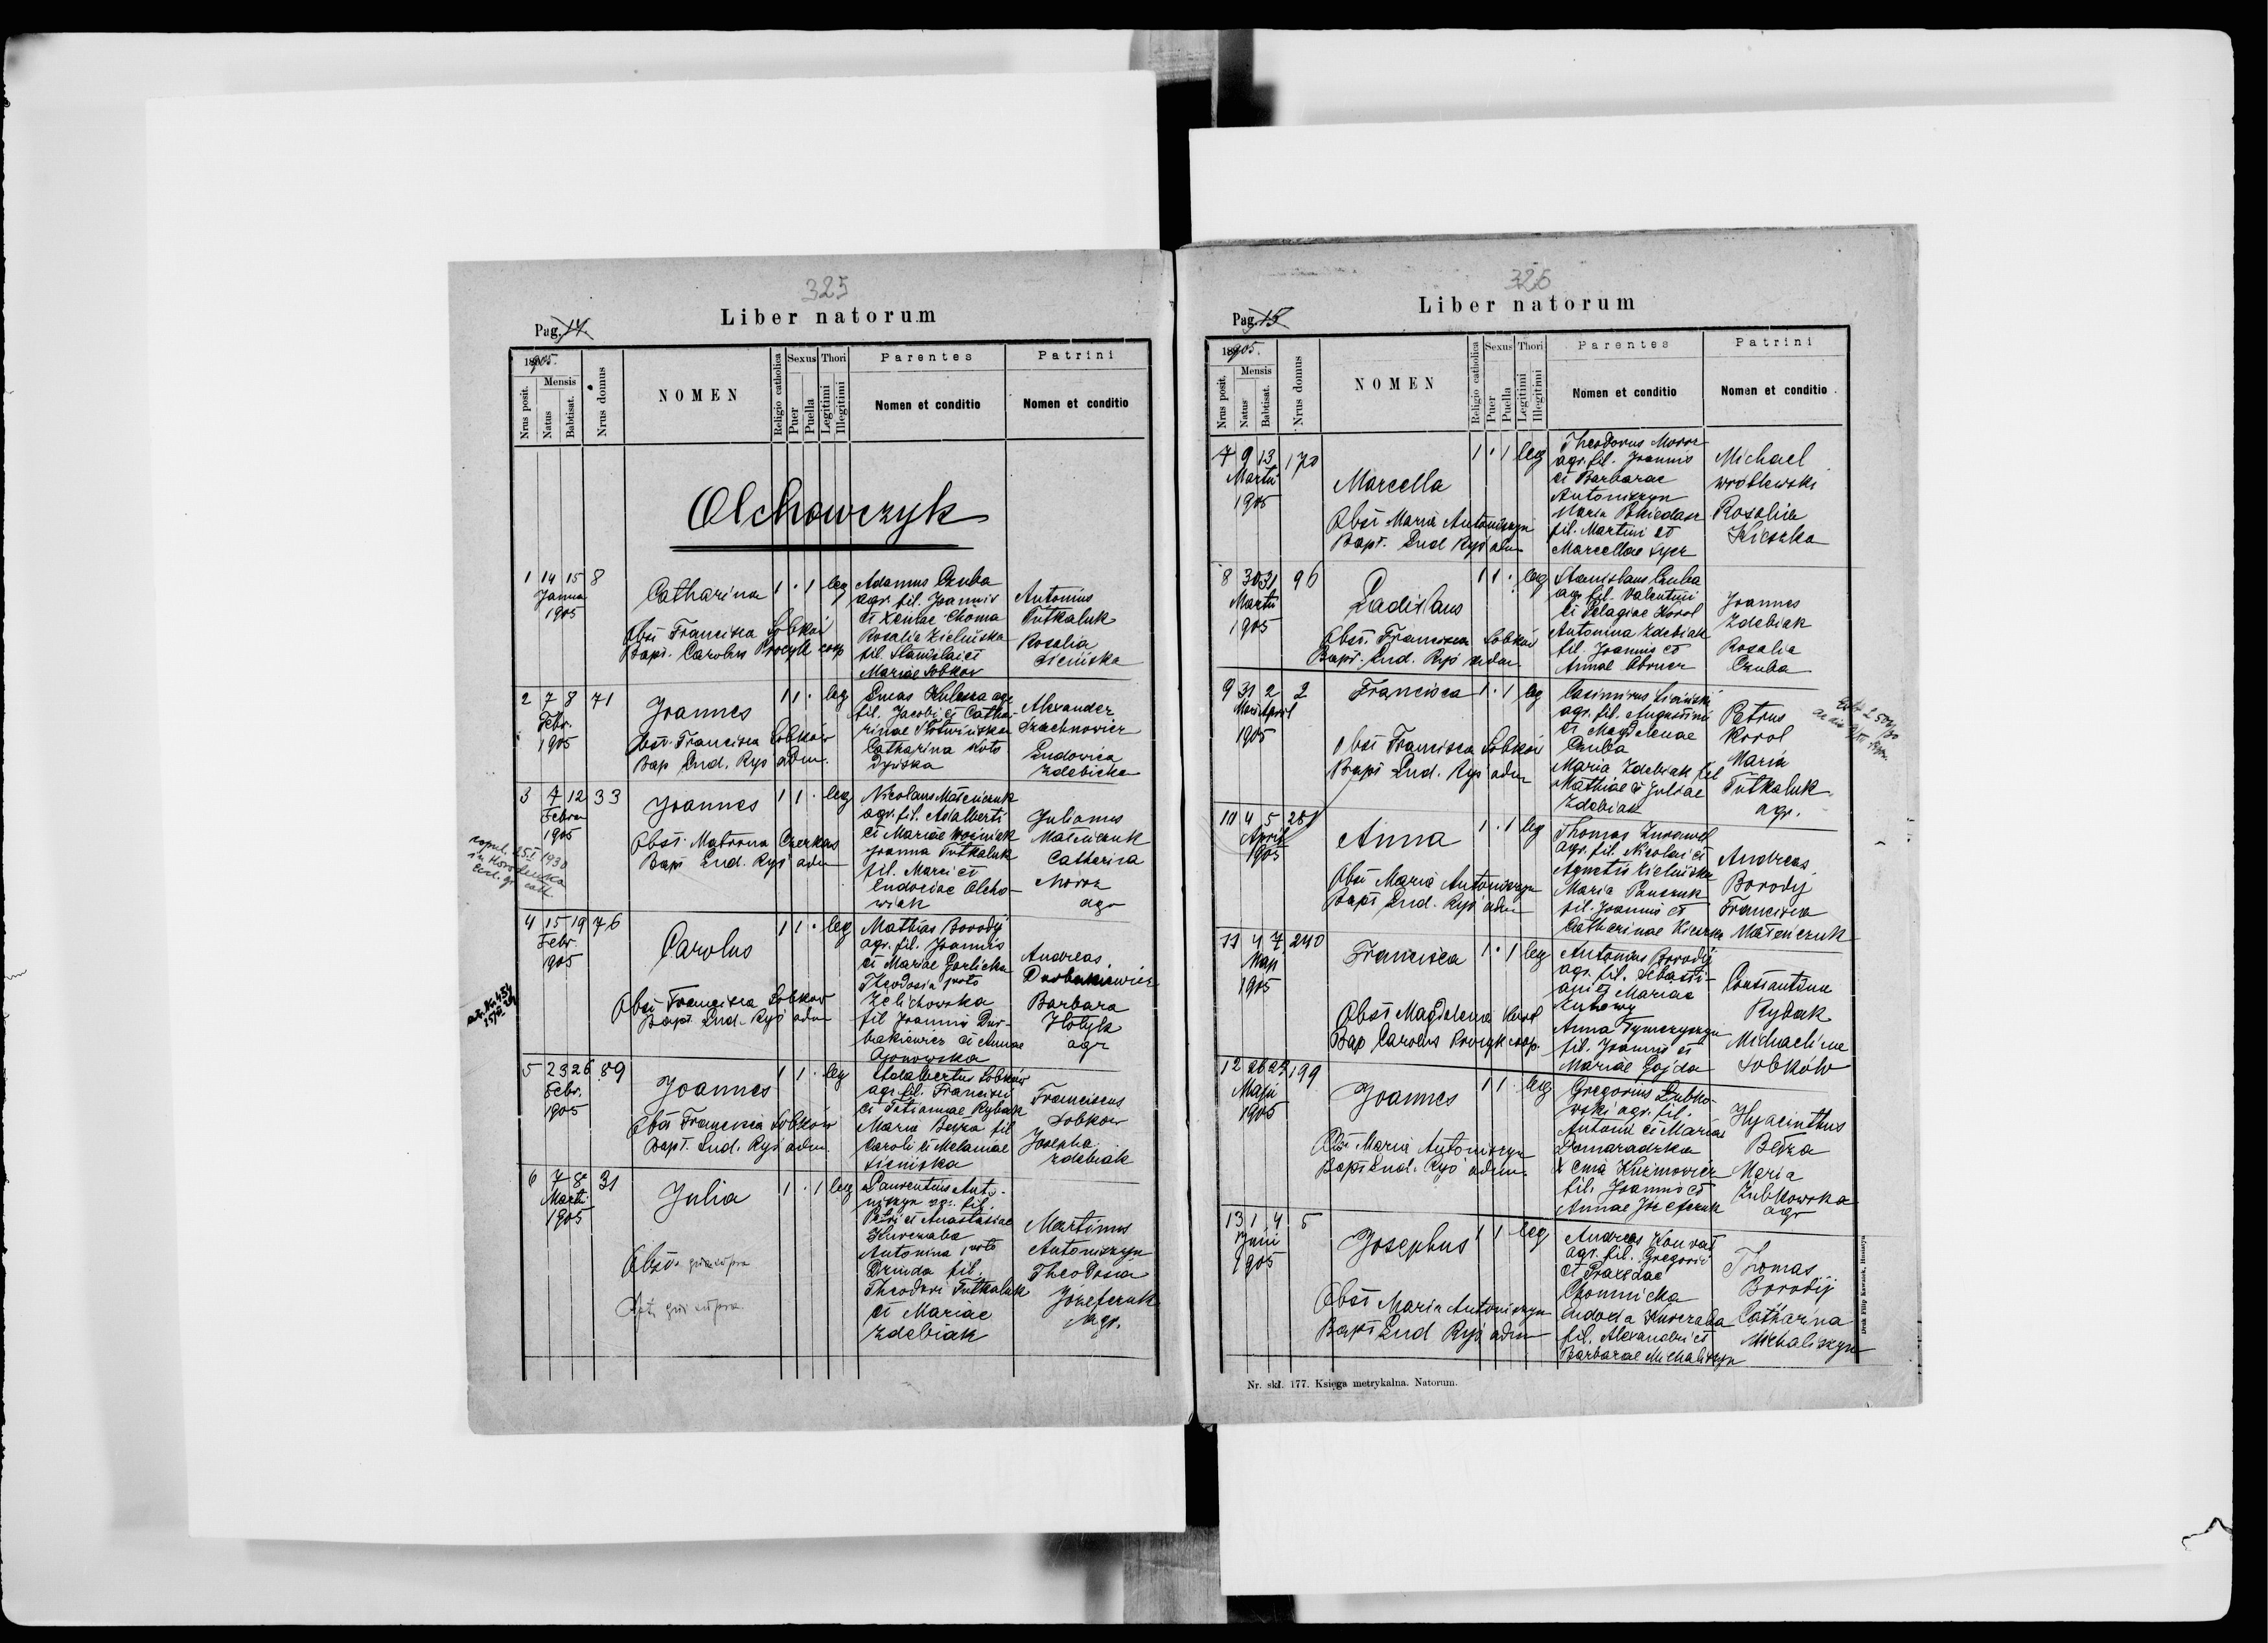 325
Liber natorum
Pag. 14.
1905.
Nrus posit.
Mensis
Natus
Babtisat.
Nrus domus
NOMEN
Religio catholica
Sexus
Puer
Puella
Thori
Legitimi
Illegitimi
Parentes
Nomen et conditio
Patrini
Nomen et conditio
Olchowczyk
1 14 15 8
Janua
1905
Catharina 1 · 1 leg
Obst Francisca Sobków
Bapt. Carolus Procyk coop
Adamus Czuba
agr. fil. Joannis
et Xeniae Choma
Rosalia Zielińska
fil. Stanislai et
Mariae Sobków
Antonius
Tutkaluk
Rosalia
Sicińska
2 7 8 71
Febr.
1905
Joannes 1 1 · leg
Obst. Francisca Sobków
Bap Lud. Ryś adm.
Lucas Kulesza agr
fil. Jacobi et Catha-
rinae Słotwińska
Catharina
Alexander
Ludovica
Zdebicka
3 7 12 33
Febru
1905
Joannes 1 1 · leg
Obst. Matrona Czerkas
Bapt Lud. Ryś adm
Nicolaus Mateńczuk
agr. fil. Adalberti
et Mariae Woźniak
Joanna Tutkaluk
fil. Marci et
Eudociae Olcho-
wiak
Julianus
Mateńczuk
Catharina
Moroz
agr
copul. 25/I 1930
in Horodenka
Eccl. gr. cath.
4 15 19 76
Febr.
1905
Carolus 1 1 · leg
Obst Francisca Sobków
Bapt. Lud. Ryś adm
Mathias Borodij
agr. fil. Joannis
et Mariae Gorlicka
Theodosia
Zelichowska
fil Joannis Dur-
bakiewicz et Annae
Andreas
Barbara
Hołyk
agr
5 23 26 89
Febr.
1905
Joannes 1 1 · leg
Obst Francisca Sobków
Bapt. Lud. Ryś adm.
Adalbertus Sobków
agr. fil. Francisci
et Tatiannae Rybak
Maria Bełza fil
Caroli et Melaniae
Sicińska
Franciscus
Sobków
Josepha
Zdebiak
6 7 8 31
Marti
1905
Julia 1 · 1 leg
Obst. qui supra
Bapt. qui supra
Laurentius Anto-
niszyn agr. fil.
Petri et Anastasiae
Kurczaba
Antonina
fil.
Theodori Tutkaluk
et Mariae
Zdebiak
Martinus
Antoniszyn
Theodosia
Józefczuk
agr.
326
Liber natorum
Pag. 15
1905.
Nrus posit.
Mensis
Natus
Babtisat.
Nrus domus
NOMEN
Religio catholica
Sexus
Puer
Puella
Thori
Legitimi
Illegitimi
Parentes
Nomen et conditio
Patrini
Nomen et conditio
7 9 13 170
Martii
1905
Marcella 1 · 1 leg
Obst Maria Antoniszyn
Bapt. Lud Ryś adm
Theodorus Moroz
agr. fil. Joannis
et Barbarae
Antoniszyn
Maria
fil. Martini et
Marcellae Łycz
Michael
Wróblewski
Rosalia
Kieszka
8 30 31 96
Martii
1905
Ladislaus 1 1 · leg
Obst. Francisca Sobków
Bapt. Lud. Ryś adm
Stanislaus Czuba
agr fil. Valentini
et Pelagiae Korol
Antonina Zdebiak
fil. Joannis et
Annae
Joannes
Zdebiak
Rosalia
Czuba
9 31 2 2
Mart April
1905
Francisca 1 · 1 leg
Obst Francisca Sobków
Bapt Lud. Ryś adm
Casimirus Siciński
agr. fil. Augustini
et Magdalenae
Czuba
Maria Zdebiak fil
Mathiae et Juliae
Zdebiak
Petrus
Korol
Maria
Tutkaluk
agr.
10 4 5 251
April
1905
Anna 1 · 1 leg
Obst Maria Antoniszyn
Bapt Lud. Ryś adm
Thomas Żurawel
agr. fil. Nicolai et
Agnetis Zielińska
Maria Panczuk
fil. Joannis et
Catharinae Kieszka
Andreas
Borodij
Francisca
Mateńczuk
11 4 7 240
Maji
1905
Francisca 1 · 1 leg
Obst Magdalena Karol
Bap Carolus Procyk coop.
Antonius Borodij
agr. fil. Sebasti-
ani et Mariae
Anna Tymczyszyn
fil. Joannis et
Mariae Gajda
Constantinus
Rybak
Michaelina
Sobków
12 26 27 199
Maji
1905
Joannes 1 1 · leg
Obst Maria Antoniszyn
Bapt Lud. Ryś adm.
Gregorius Zubko-
wski agr. fil.
Antonii et Mariae
Domaradzka
Xenia Kuzmowicz
fil. Joannis et
Annae Józefczuk
Hyacinthus
Bełza
Maria
Zubkowska
agr
13 1 4 5
Juni
1905
Josephus 1 1 leg
Obst Maria Antoniszyn
Bapt Lud Ryś adm
Andreas
agr. fil. Gregorii
et Praxedae
Chomnicka
Eudoxia Kurczaba
fil. Alexandri et
Barbarae Michaliszyn
Thomas
Borodij
Catharina
Michaliszyn
Nr. skł. 177. Księga metrykalna. Natorum.